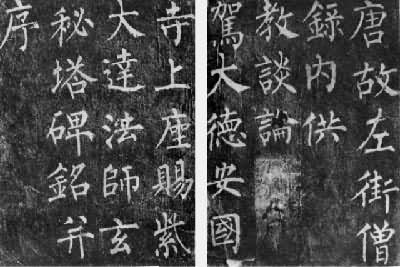 唐故左街僧
錄内供
教談論
駕大德安國
寺上座賜紫
大達法師玄
秘塔碑銘并
序